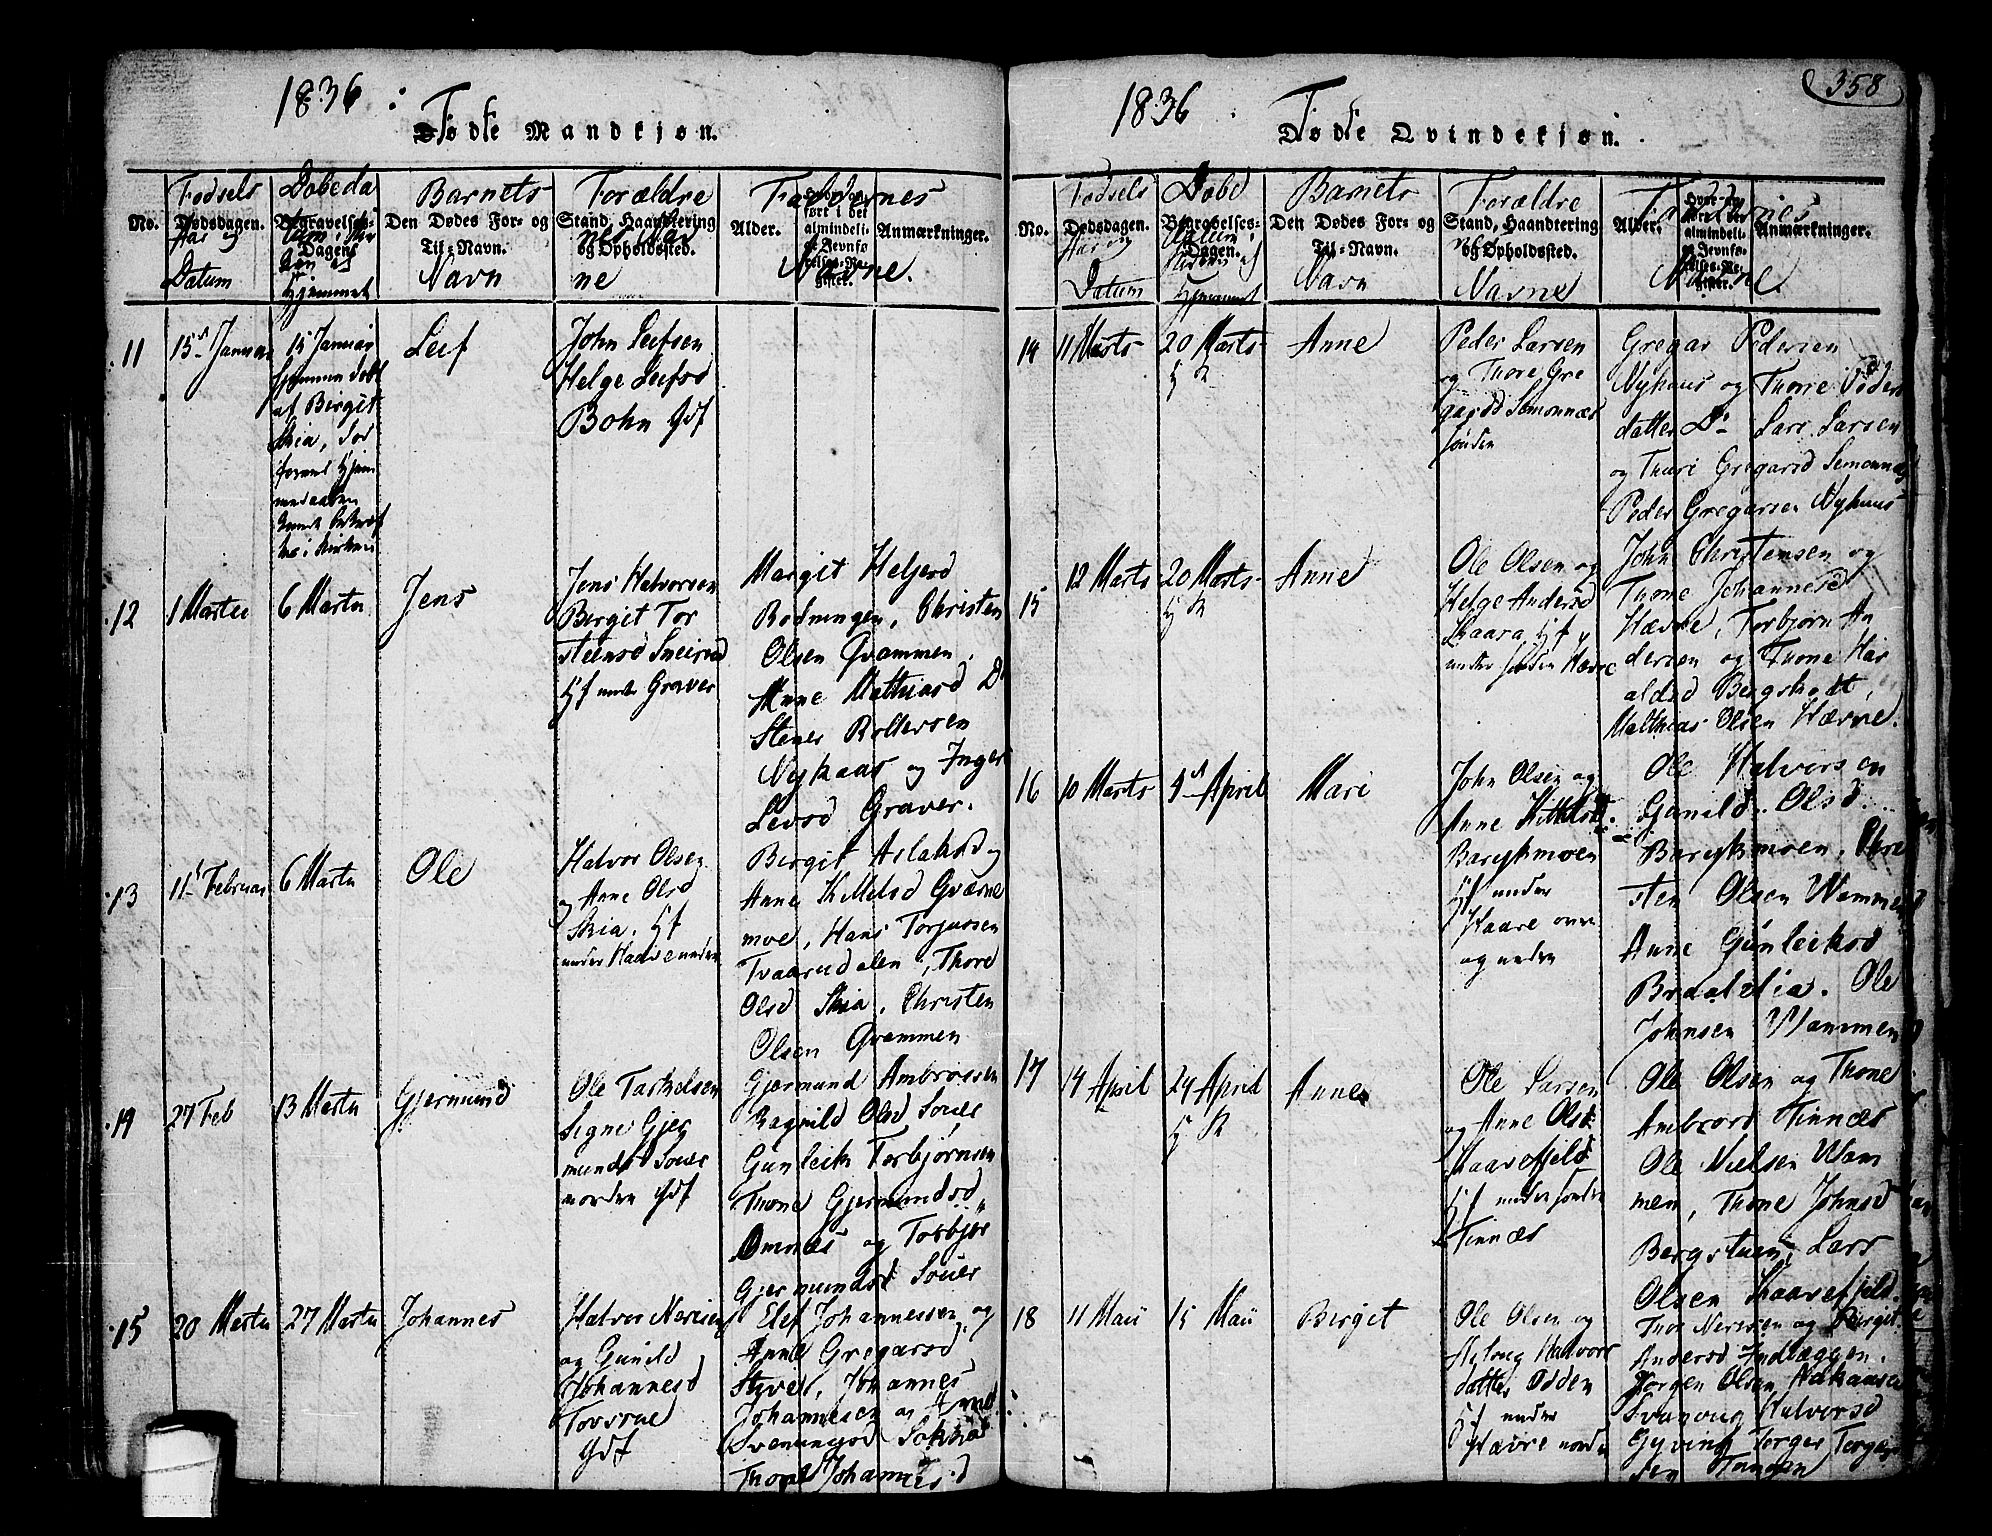 1836 :
Fødte Mandkjøn.
No.
Fødsels
Dødsdagen.
Aar og
Datum
Døbeda
Begravelses-
Dagen.
Hjemmet
Barnets
Den Dødes For- og
Til-Navn.
Navn
Forældre
Stand, Haandtering
og Opholdssted.
ne
Faddernes
Alder.
Anmærkninger.
Navne.
11
15 Januar
15 Januar
hjemme døbt
af Birgit
Skia,
Kirken
Leif
John Leifsen
Helge Leifsd
Bohn Gdf
12
1 Martii
6 Martii
Jens
Jens Halvorsen
Birgit Tor
steensd Sneirud
Hf under Graver
Margit Heljesd
Rodningen, Christen
Olsen Qvammen.
Anne Mathiasd Do
Stener Rollefsen
Nykaas og Inger
Levsd Graver.
13
11 Februar
6 Martii
Ole
Halvor Olsen
og Anne Olsd
Skia. Hf
under
Birgit Aslaksd og
Anne Kittelsd Gværne
moe, Hans Torjussen
Tvaarudalen, Thore
Olsd Skia. Christen
Olsen Qvammen
14
27 Feb
13 Martii
Gjermund
Ole Tarkelsen
Signe Gjer
mundsd Souer
norden Gdf
Gjermund Ambrossen
Ragnild Olsd Souer
Gunleik Torbjørnsen
Thone Gjermundsd
Omnæs og Torbjør
Gjermundsd Souer
15
20 Martii
27 Martii
Johannes
Halvor Nerisen
og Gunild
Johannesd
Tovsrue
Gdf
Elef Johannessen og
Anne Gregarsd
Styver, Johannes
Johannesen og Anne
Svenungsd
Thone Johannesd
1836
358
Fødte Qvindekjøn.
No.
Fødsels
Dødsdagen.
Aar og
Datum
Døbe
Begravelses-
Dagen.
Hjemmet
Barnets
Den Dødes For- og
Til-Navn.
Navn
Forældre
Stand, Haandtering
og Opholdssted.
Navne
Alder.
Anmærkninger.
14
11 Marts
20 Marts
HK
Anne
Peder Larsen
og Thore Gre
garsd Semonnæs
sønden
Gregar Pedersen
Nyhuus og Thone Peders
datter Do Lars Larsen
og Thuri Gregarsd Semonnæs
Peder Gregarsen Nyhuus
15
12 Marts
20 Marts
HK
Anne
Ole Olsen og
Helge Andersd
Kaara, Hf
under sønden Hævre
John Christensen og
Thone Johannesd
Hævre, Torbjørn An
dersen og Thone Har
aldsd Bergstodt,
Matthias Olsen Hævre.
16
10 Marts
4 April
Mari
John Olsen og
Anne Kittelsd
Barykmoen
Hf under
Kaare
og neden
Ole Halvorsen
Gunild Olsd
Barykmoen, Chri
sten Olsen Wammen
Anne Gunleiksd
Bradalslia. Ole
Johnsen Wammen
17
14 April
24 April
HK
Anne
Ole Larsen
og Anne Olsd
Haavefjeld
Hf under sønden
Tinnæs
Ole Olsen og Thone
Ambrosd Tinnæs
Ole Nielsen Wam
men, Thone Johnsd
Bergstuen, Lars
Olsen Haavefjeld.
18
11 Maii
15 Maii
Birgit
Ole Olsen og
Halvors
datter Odden
Hf under
Hævre norden
Thor Nerisen og Birgit
Andersd Indlæggen.
Jorgen Olsen
Svanoug Halvorsd
Gyving Torger Torger
sen Tangen